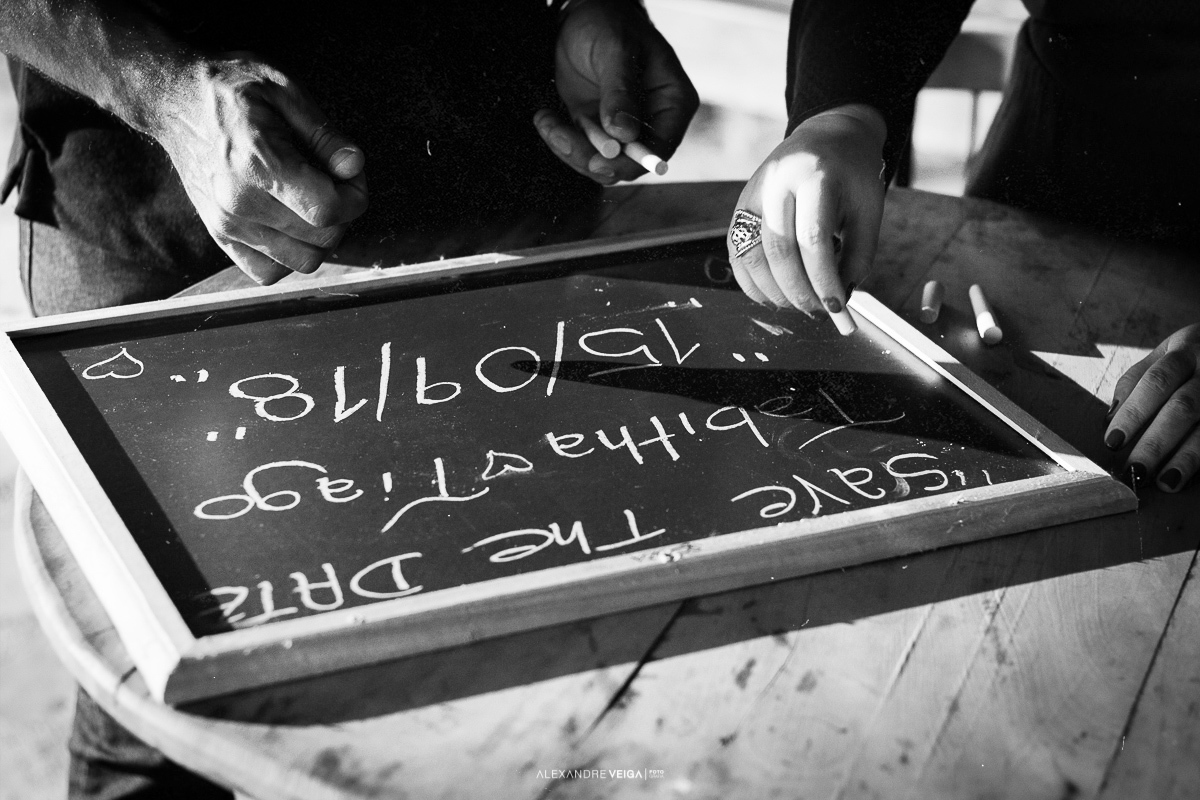 "Save The DATE
Tabitha ♡ Tiago
"15/09/18" ♡
ALEXANDRE VEIGA | FOTO